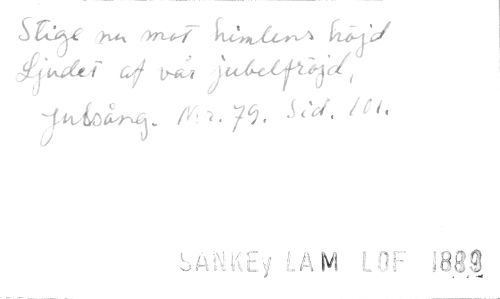 Stige nu mot himlens höjd
Ljudet af vår jubelfröjd,
Julsång. Nr. 79. Sid. 101.
SANKEY LAM LOF 1889